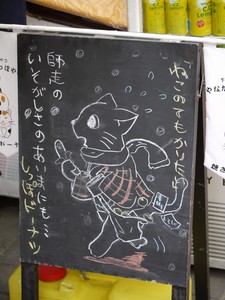 ねこのてもかりたい
師走の
いそがしさのあいまにも…
しっぽドーナツ